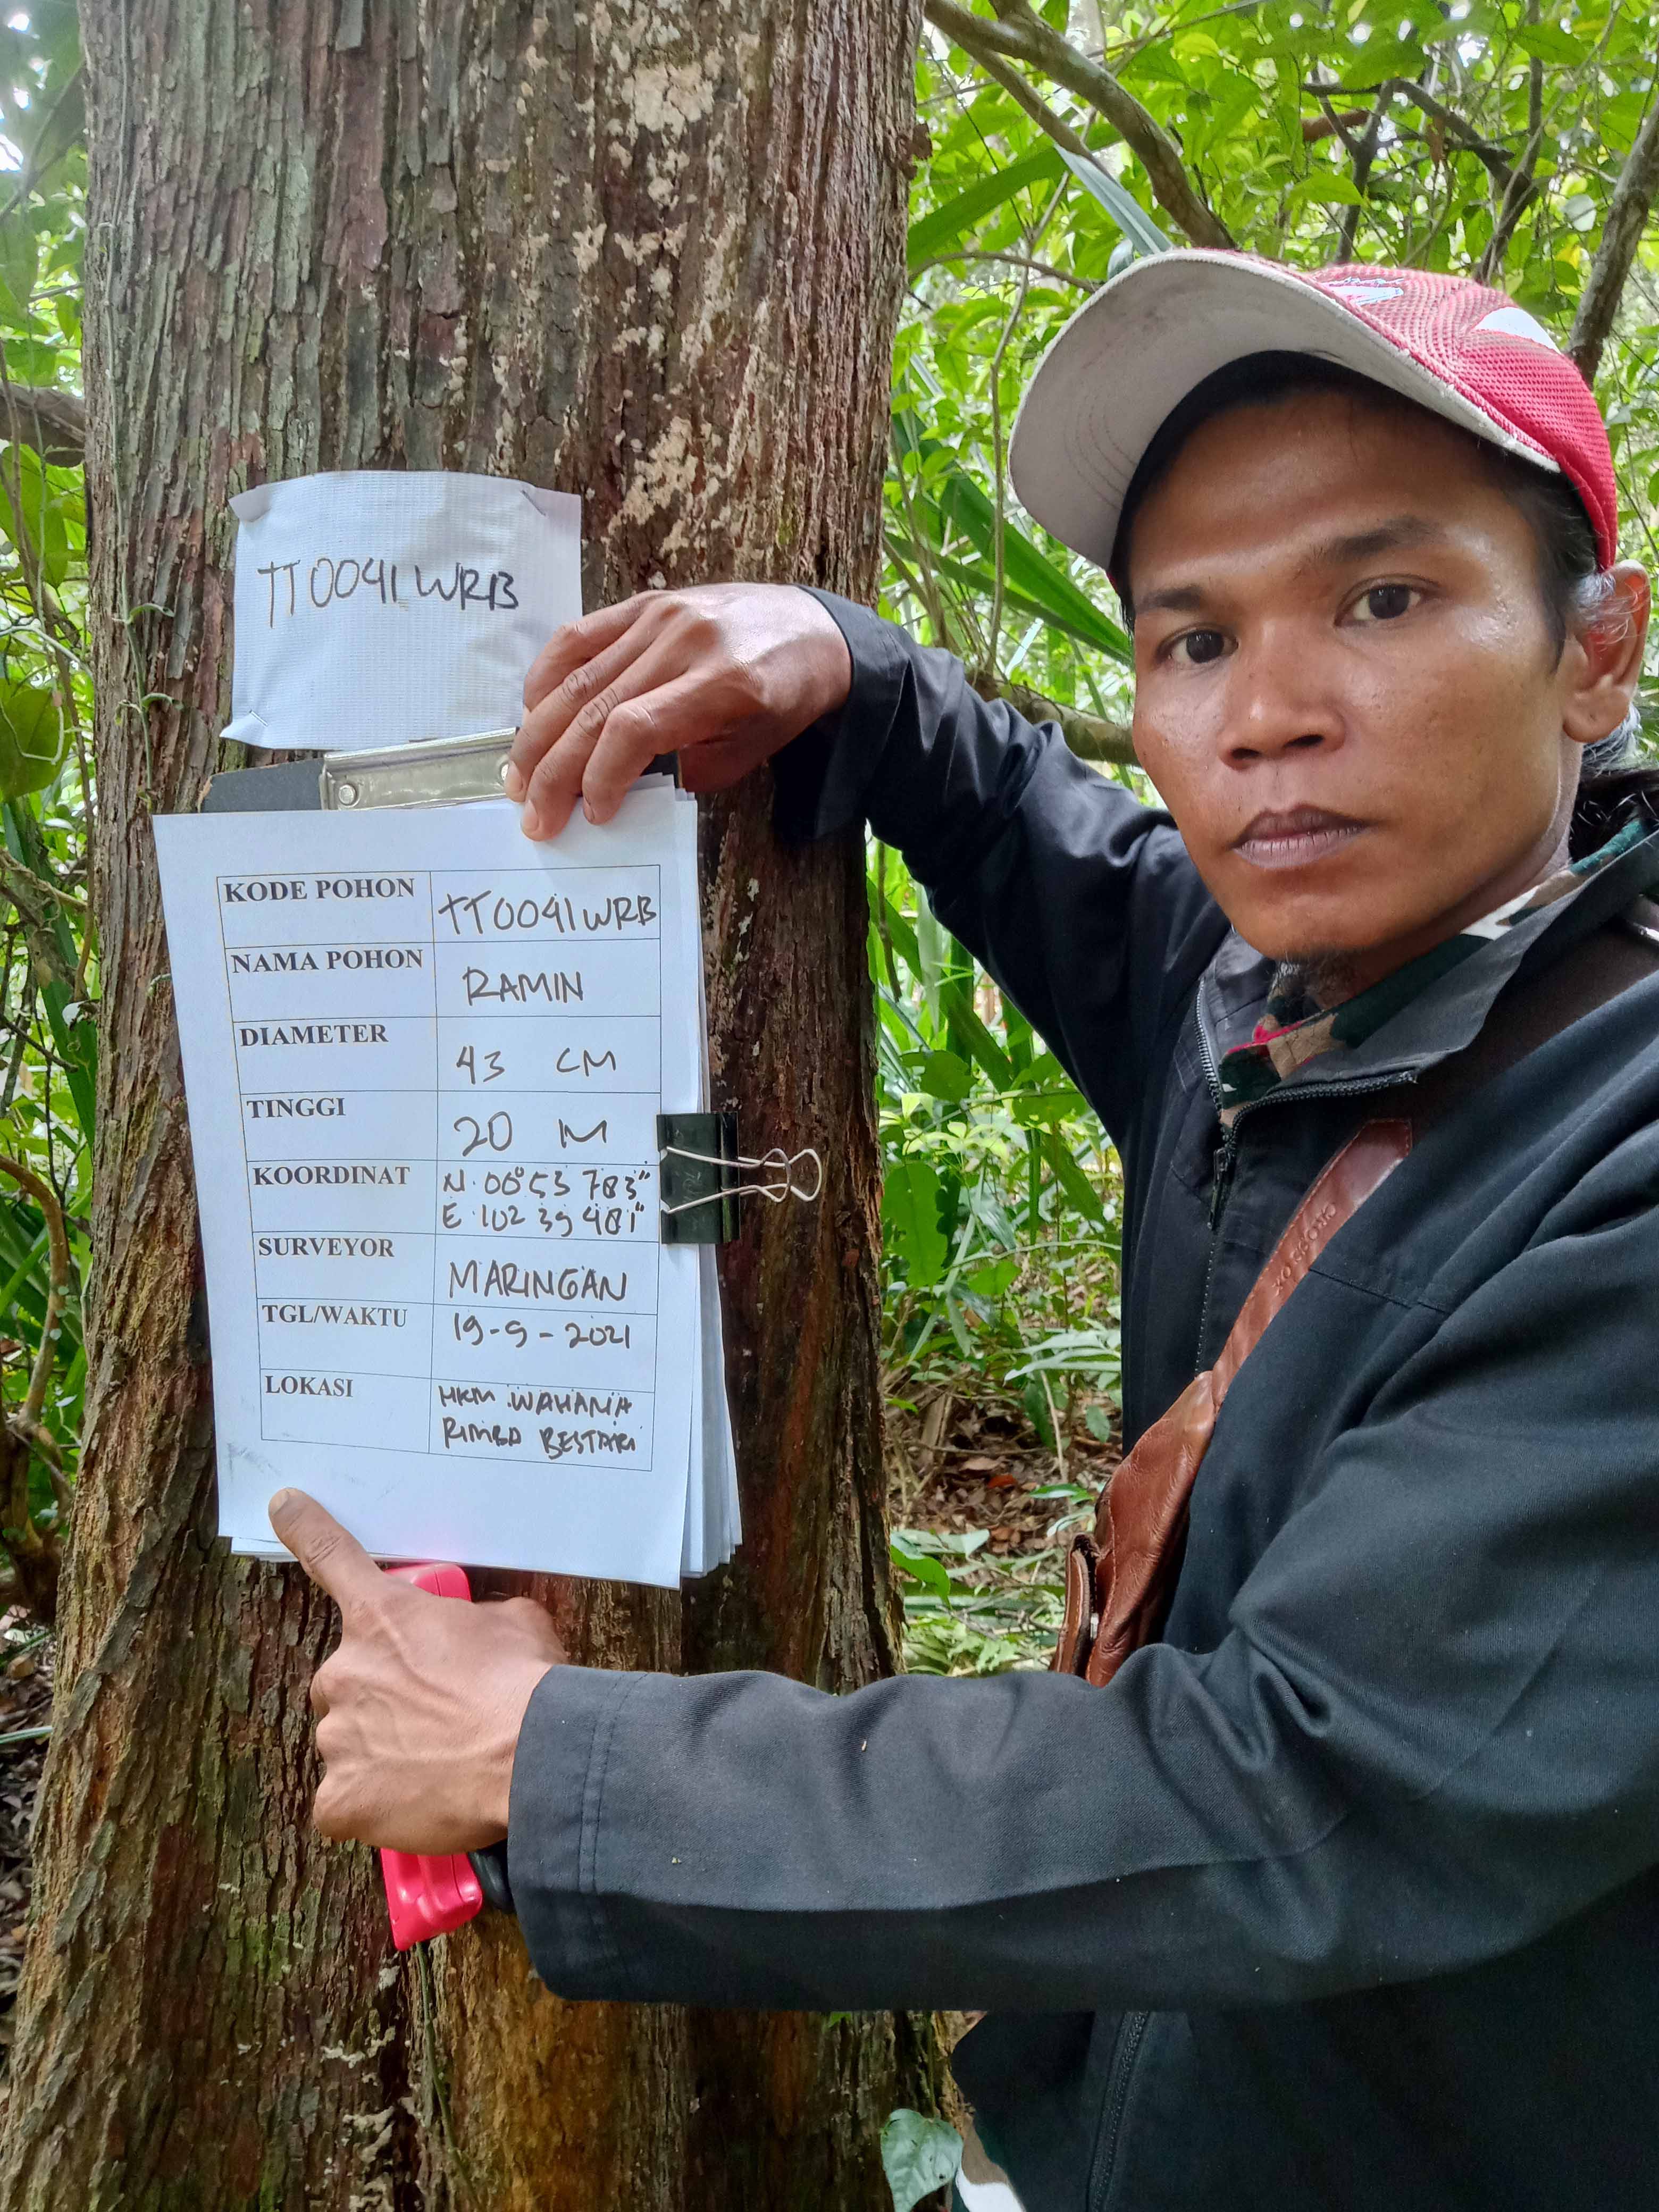 TT0041WRB
KODE POHON TT0041WRB
NAMA POHON RAMIN
DIAMETER 43 CM
TINGGI 20 M
KOORDINAT N. 00° 53 783"
E. 102 39 481"
SURVEYOR MARINGAN
TGL/WAKTU 19-9-2021
LOKASI HKM WAHANA
RIMBA BESTARI